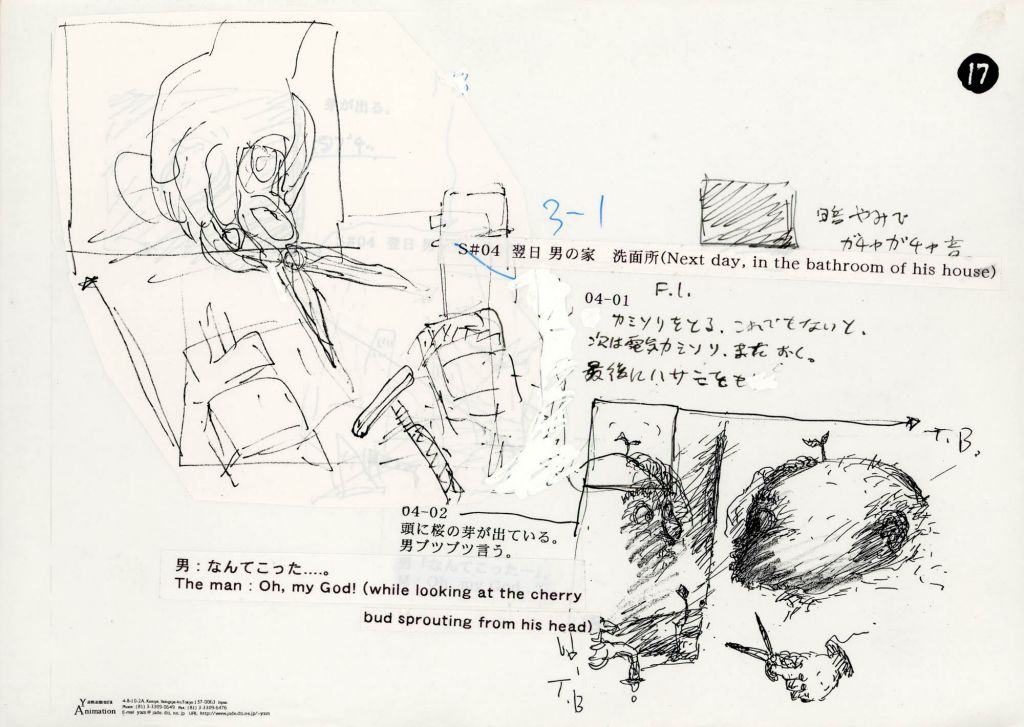 17
3-1
暗やみで
ガチャガチャ音
S#04 翌日 男の家 洗面所(Next day, in the bathroom of his house)
04-01 F.I.
カミソリをとる、これでもないと、
次は電気カミソリ、またおく。
最後にハサミをも
T.B.
04-02
頭に桜の芽が出ている。
男ブツブツ言う。
男：なんてこった....。
The man : Oh, my God! (while looking at the cherry
bud sprouting from his head)
T.B
Yamamura
Animation